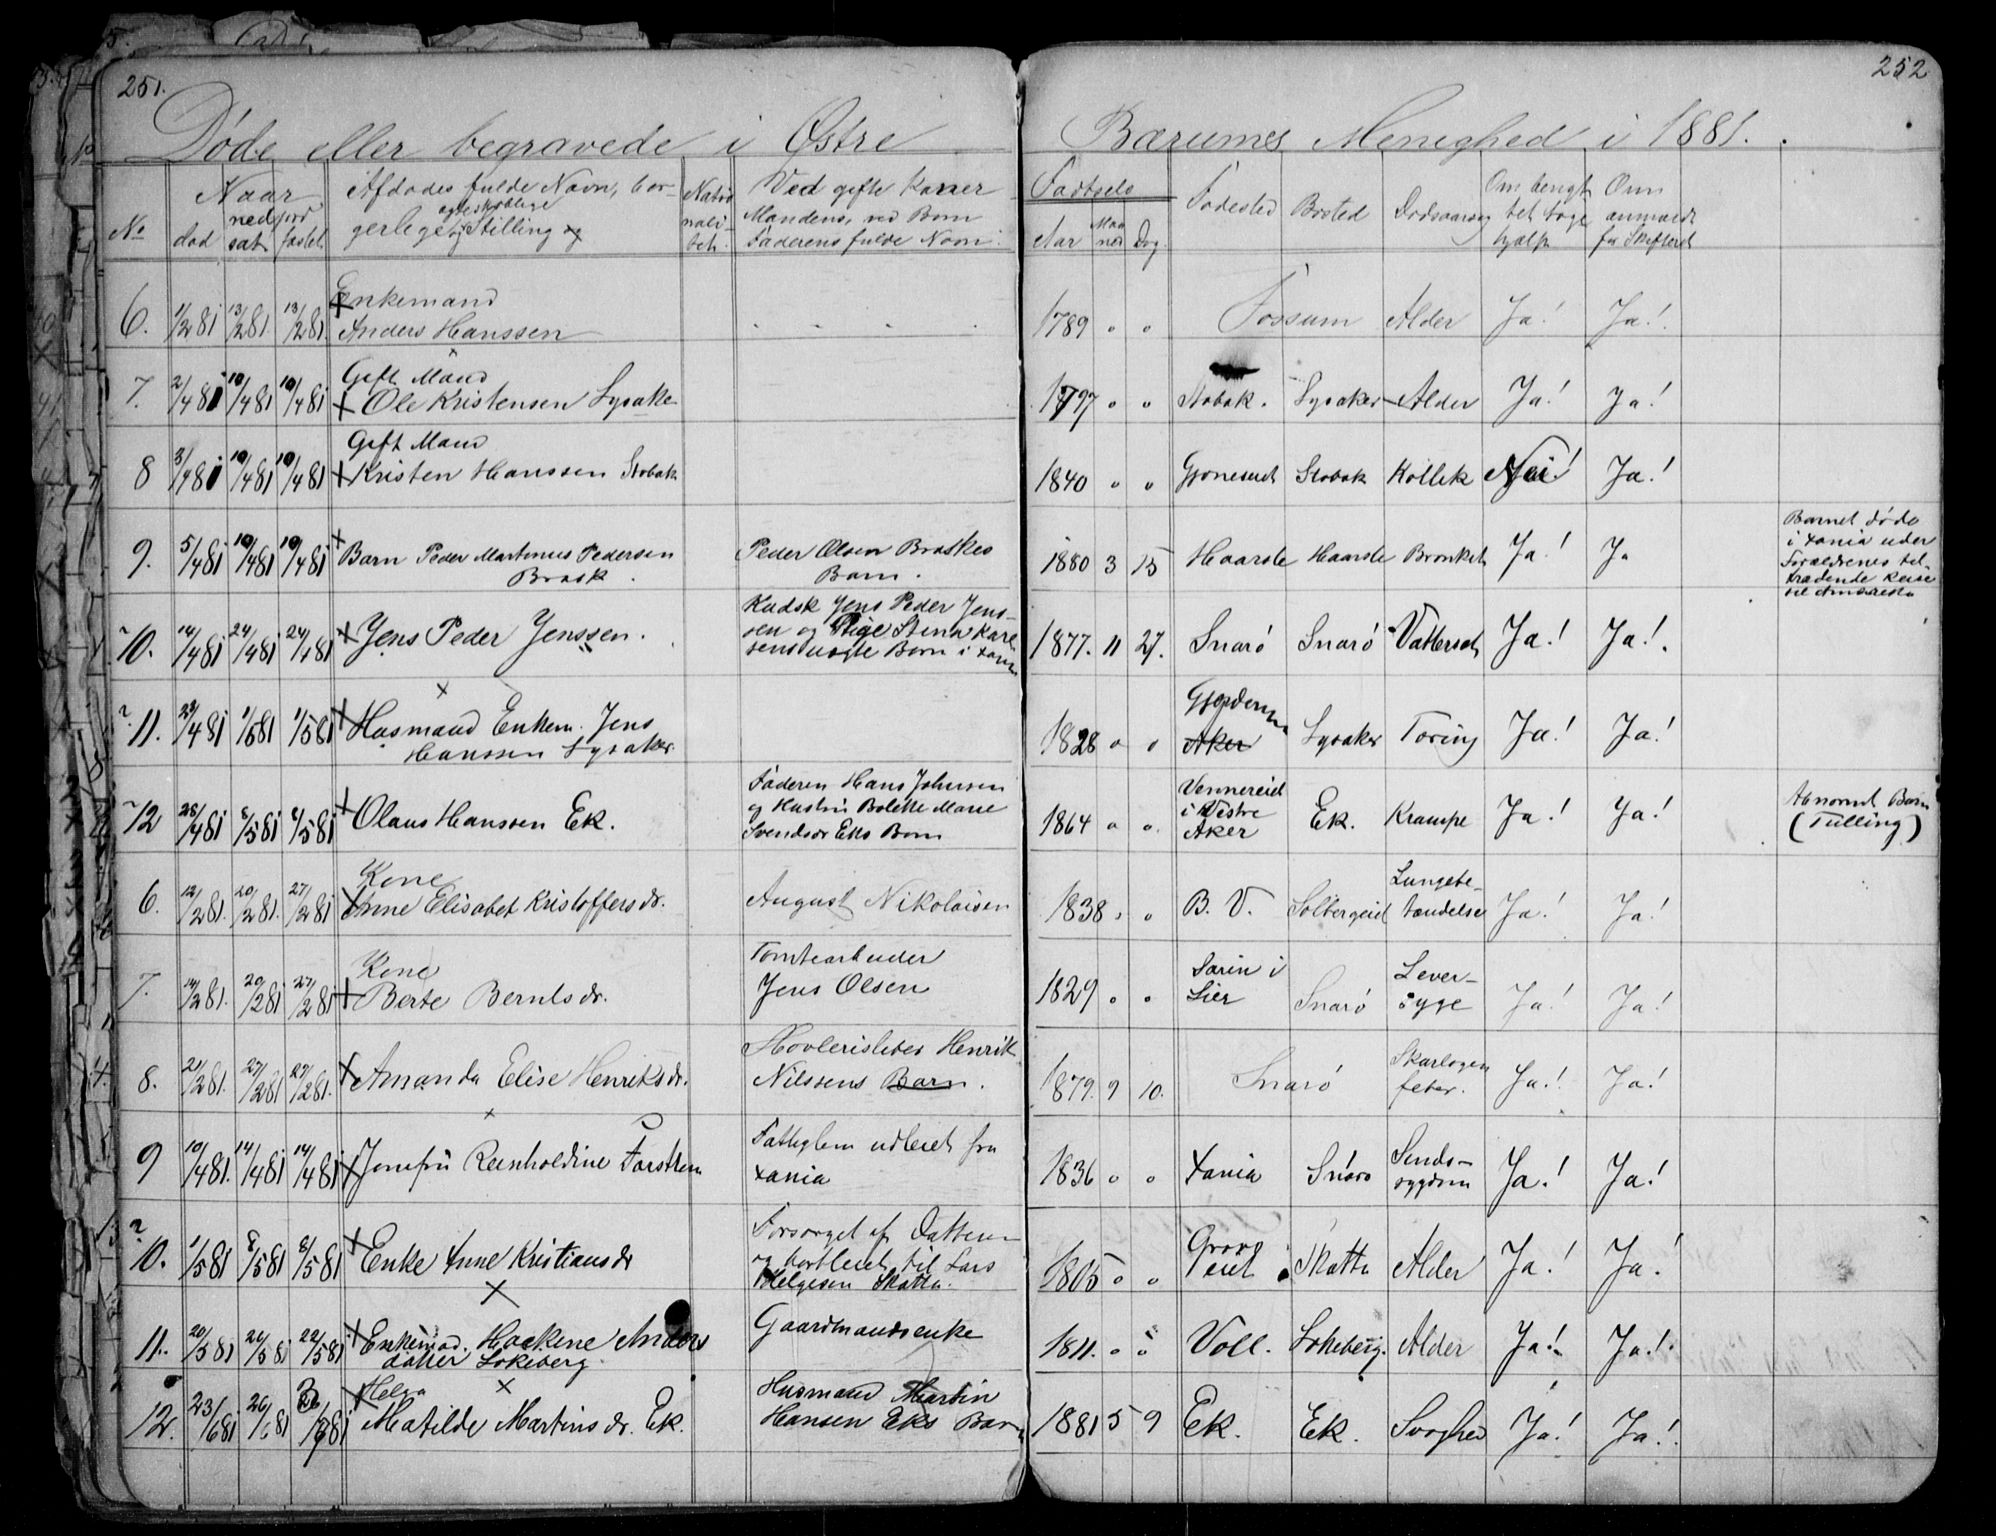 251.
252
Døde eller begravede i Østre Bærums Menighed i 1881.
No Naar død nedsat jordfæstet Afdødes fulde Navn, borgerlige og ægteskablige Stilling Nationalitet Ved gifte Koner Mandens, ved Børn Faderens fulde Navn. Fødsels Aar Maaned Dag Fødested Bosted Dødsaarsag Om benyttet Lægehjælp Om anmeldt for Skifteret
6. 1/2 81 13/2 81. 13/2 81. Enkemand
Anders Hanssen 1789 " " Fossum Alder Ja! Ja!
7. 2/4 81 10/4 81 10/4 81 Gift Mand
Ole Kristensen Lysake 1797 " " Stobak. Lysaker Alder Ja! Ja!
8 3/4 81 10/4 81 10/4 81 Gift Mand
Kristen Hanssen Stobak 1840 " " Stobak Nei! Ja!
9. 5/4 81 10/4 81 10/4 81 Barn Peder Martinus Pedersen
Brask. Peder Olsen Braskes
Barn. 1880 3 15 Haarsle Haarsle Bronkit Ja! Ja Barnet døde
i Xania uder
Forældrenes til-
trædende Reise
til Amerika
10. 14/4 81 24/4 81 24/4 81 Jens Peder Jenssen. Kudsk Jens Peder Jens-
sen og Pige Stina Karl
sens uægte Barn i Xania 1877. 11 27. Snarö Snarö Vattersot Ja! Ja!
11. 23/4 81 1/5 81 1/5 81 Husmand Enkem. Jens
Hanssen Lysaker. 1828 " " Aker Lysaker Tæring Ja! Ja!
12 28/4 81 8/5 81 8/5 81 Olaus Hanssen Ek. Faderen Hans Johnsen
og Hustru Bolette Marie
Svendsdr Eks Barn 1864 " " Vennereid
i Vestre
Aker Ek. Krampe Ja! Ja! Abnormt Barn
(Tulling)
6. 12/2 81. 20/2 81. 27/2 81 Kone
Anne Elisabet Kristoffersdr. August Nikolaisen 1838 " " B. V. Solbergeid Lungebe-
tændelse Ja! Ja!
7. 14/2 81. 20/2 81 27/2 81 Kone
Berte Berntsdr. Tomtearbeider
Jens Olsen 1829 " " i
Lier Snarö Lever-
syge Ja! Ja!
8. 21/2 81. 27/2 81 27/2 81. Amanda Elise Henriksdr. Høvleribetes Henrik
Nilssens Barn. 1879. 9 10. Snarö Skarlagen
feber. Ja! Ja!
9 10/4 81. 14/4 81 14/4 81 Jomfru Reinholdine Fattiglem udleiet fra
Xania 1836 " " Xania Snarö Sinds-
sygdom Ja! Ja!
10. 1/5 81 8/5 81 8/5 81 Enke Anne Kristiansdr Forsørget af Datteren
og bortleiet til Lars
Helgesen Skatta. 1805 " " Skatta Alder Ja! Ja!
11. 20/5 81 22/5 81 22/5 81 Haakine Anders
datter Lokeberg. Gaardmandsenke 1811. " " Voll. Lokeberg. Alder Ja! Ja!
12. 23/6 81 26/6 81 Helga
Matilde Martinsdr. Ek. Husmand Martin
Hansen Eks Barn 1881 5 9 Ek. Ek. Svaghed Ja! Ja!